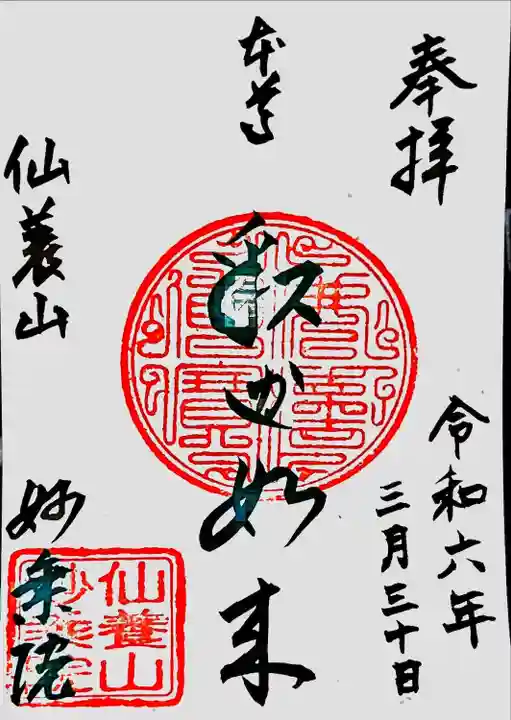 奉拝
令和六年
三月三十日
本尊
釈迦如来
仙養山
妙乗院
仙養山
妙乗院